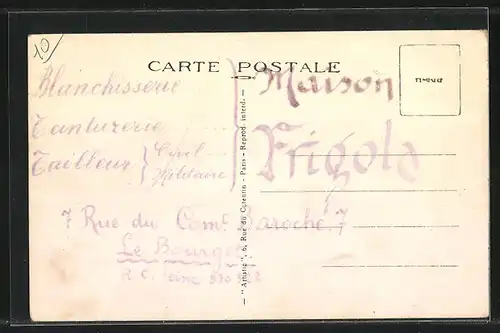 10
CARTE POSTALE
TIMBRE
Blanchisserie
Tanturerie
Tailleur } Civil
Militaire
Maison
Frigola
7 Rue du Comt Baroche. 7
Le Bourget
R.C. Seine
— "Artistic", 6, Rue du Cotentin - Paris - Reprod. interd. —